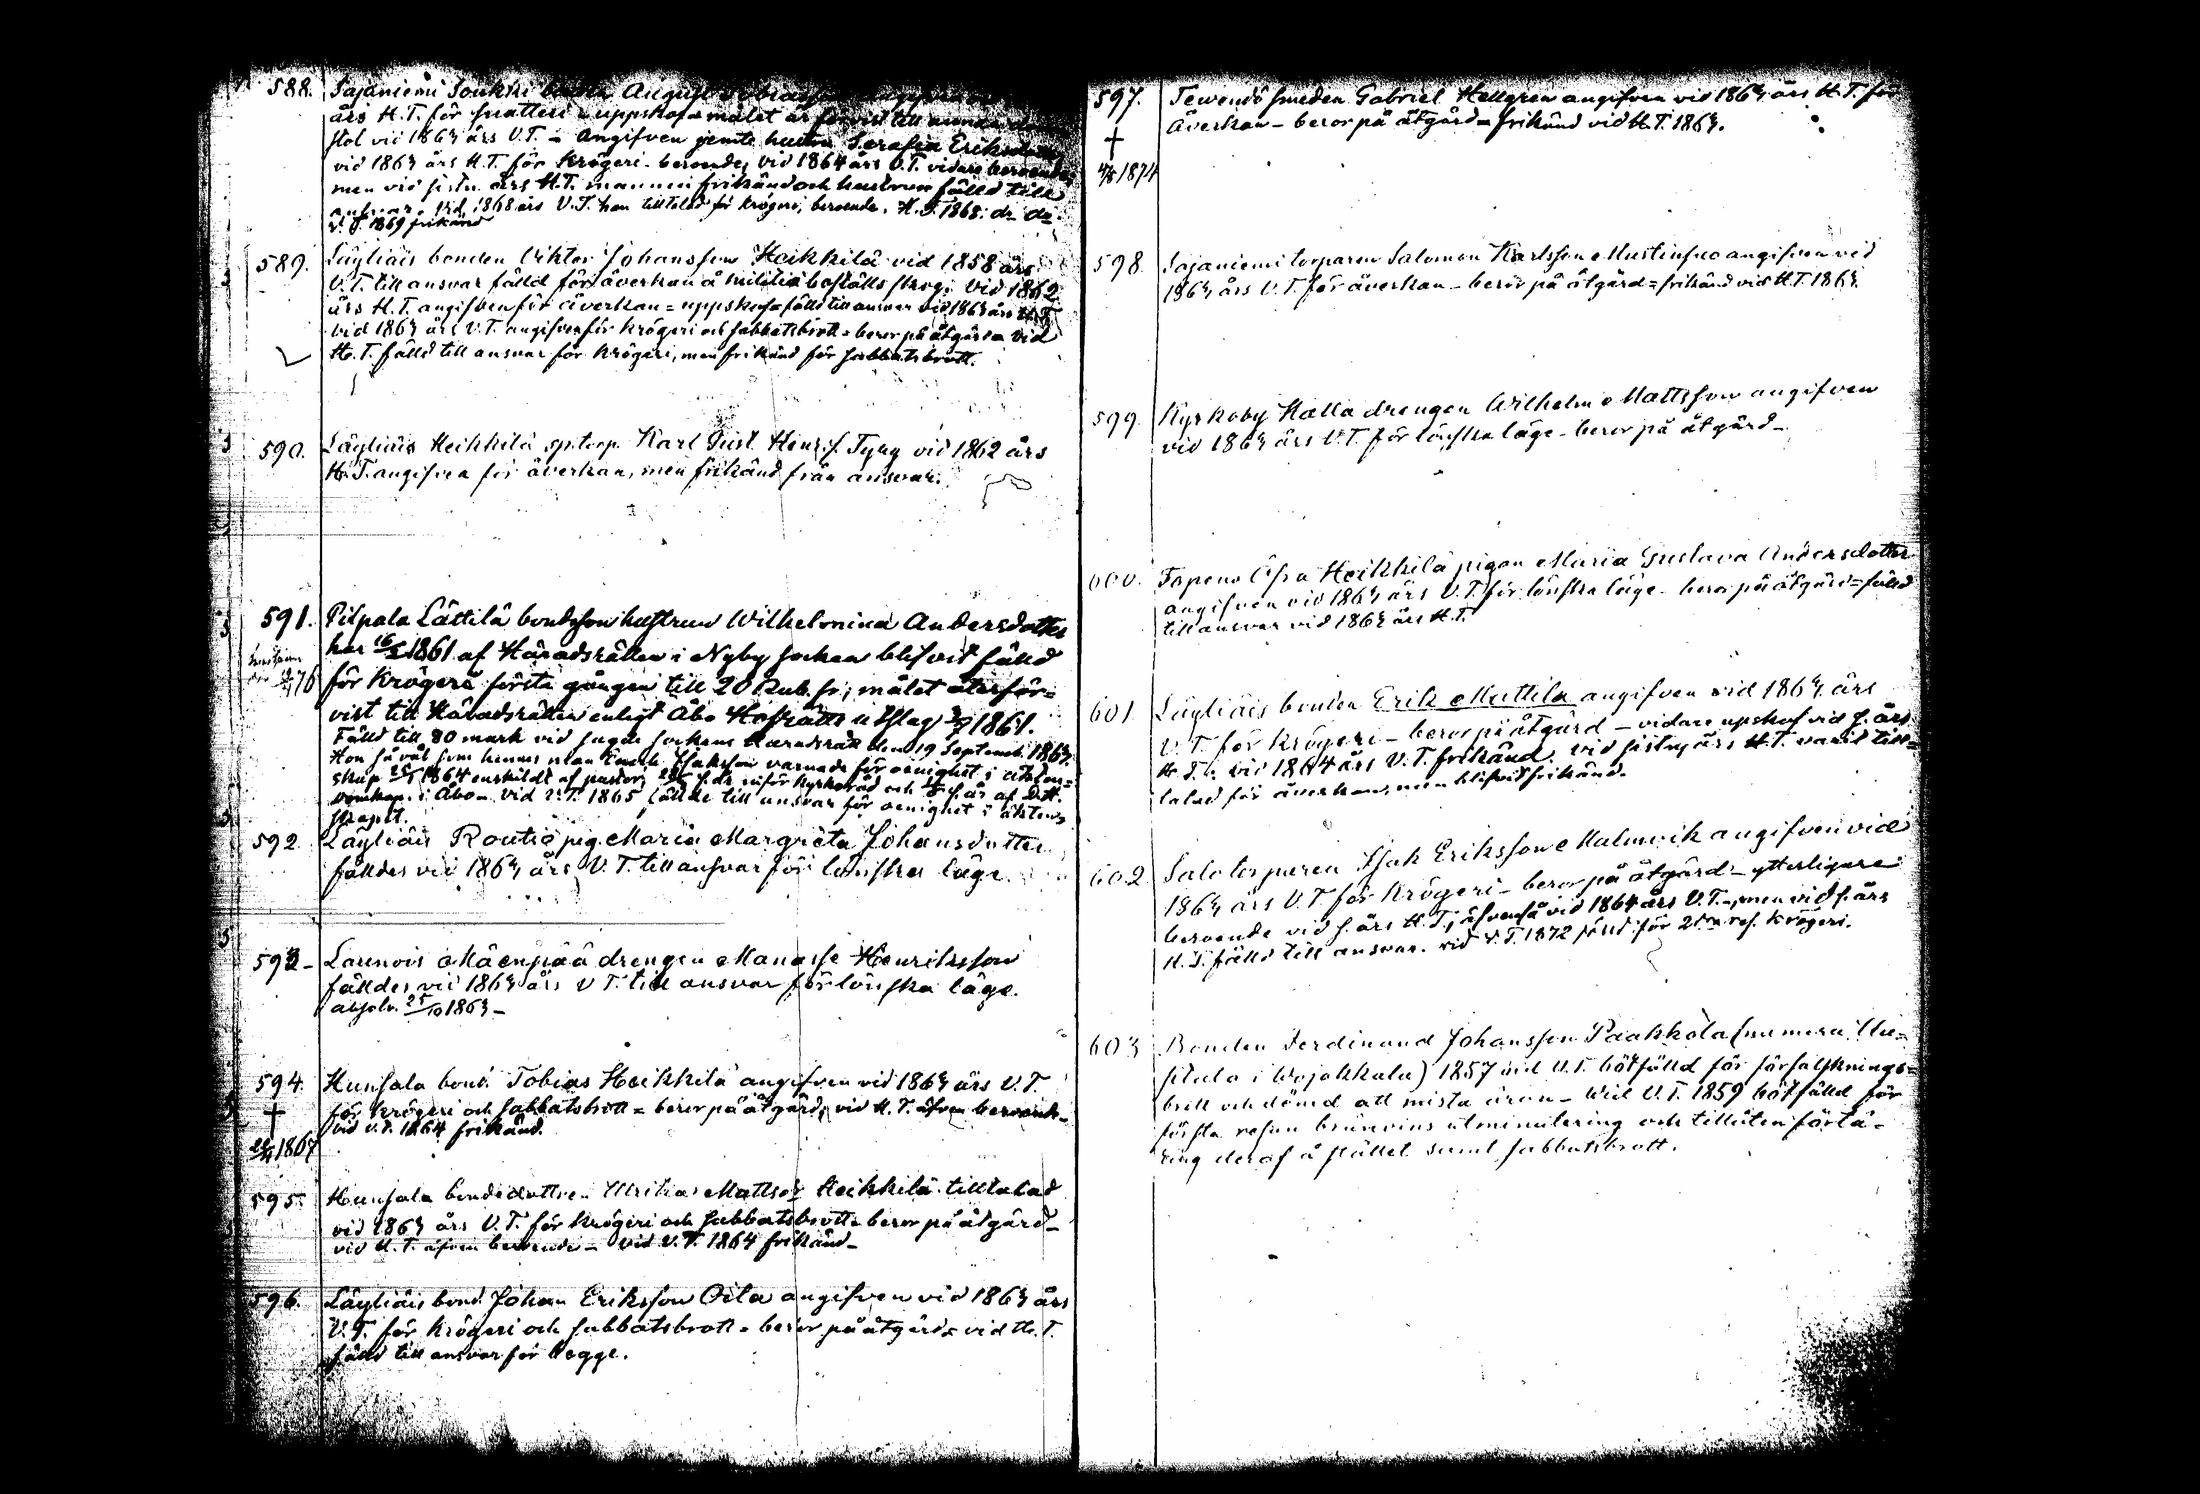 588. Sajaniemi Soukki August
års H.T. för snatteri - uppskof = målet är förvist till annan dom-
stol vid 1863 års V.T. - Angifven jemte hustru Serafia Eriksdotter
vid 1863 års H.T. för krögeri - beroende, vid 1864 års V.T. vidare beroende,
men vid sistn. års H.T. mannen frikänd och hustrun fälld till
ansvar. Vid 1868 års V.T. han tilltalad för krögeri, beroende. H.T. 1868: do do
V.T. 1869 frikänd
589. Läyliäis bonden Viktor Johansson Heikkilä vid 1858 års
V.T. till ansvar fälld för åverkan å militiä boställs skog. Vid 1862
års H.T. angifven för åverkan = uppskof = fälld till ansvar vid 1863 års H.T.
vid 1863 års V.T. angifven för krögeri och sabbatsbrott = beror på åtgärd = vid
H.T. fälld till ansvar för krögeri, men frikänd för sabbatsbrott.
590. Läyliäis Heikkilä sp.torp. Karl Gust. Henr.s. Tyyg vid 1862 års
H.T. angifven för åverkan, men frikänd från ansvar.
591. Pilpala Lättilä bondeson hustrun Wilhelmina Andersdotter
har 16/5 1861 af Häradsrätten i Nyby socken blifvit fälld
76 för Krögeri första gången till 20 Rub. sr, målet återför-
vist till Häradsrätten enligt Åbo Hofrätts utslag 3/9 1861.
Fälld till 80 mark vid socknens Häradsrätt den 19 Septemb. 1863.
Hon så väl som hennes man Isaksson varnade för oenighet i äkten-
skap 1864 enskildt af pastor, inför kyrkoråd och s. år af D.K.
i Åbo - Vid V.T. 1865 fällde till ansvar för oenighet i äkten-
skapet.
592. Läyliäis Routio pig. Maria Margreta Johansdotter
fälldes vid 1863 års V.T. till ansvar för lönska läge.
593 - Launois Mäenpää drengen Manasse Henriksson
fälldes vid 1863 års V.T. till ansvar för lönska läge.
absolv. 25/10 1863 -
594. Hunsala bond. Tobias Heikkilä angifven vid 1863 års V.T.
† för krögeri och sabbatsbrott = beror på åtgärd, vid H.T. äfven beroende -
vid V.T. 1864 frikänd.
1867
595. Hunsala bondedottren Ulrika Mattsdr Heikkilä tilltalad
vid 1863 års V.T. för krögeri och sabbatsbrott = beror på åtgärd -
vid H.T. äfven beroende - vid V.T. 1864 frikänd -
596. Läyliäis bond. Johan Eriksson Oila angifven vid 1863 års
V.T. för krögeri och sabbatsbrott = beror på åtgärd = vid H.T.
fälld till ansvar för begge.
597. Tewendö smeden Gabriel Hellgren angifven vid 1863 års H.T. för
åverkan - beror på åtgärd = frikänd vid H.T. 1863.
†
4/8 1874
598. Sajaniemi torparen Salomon Karlsson Mustinsuo angifven vid
1863 års V.T. för åverkan - beror på åtgärd = frikänd vid H.T. 1863
599 Kyrkoby Kalla drengen Wilhelm Mattsson angifven
vid 1863 års V.T. för lönska läge - beror på åtgärd -
600. Topeno Heikkilä pigan Maria Gustava Andersdotter
angifven vid 1863 års V.T. för lönska läge - beror på åtgärd = fälld
till ansvar vid 1863 års H.T.
601 Läyliäis bonden Erik Mattila angifven vid 1863 års
V.T. för krögeri - beror på åtgärd - vidare upskof vid s. års
H.T.. vid 1864 års V.T. frikänd. vid sistn. års H.T. varit till-
talad för åverkan, men blifvit frikänd.
602 Salo torparen Isak Eriksson Malmvik angifven vid
1863 års V.T för krögeri - beror på åtgärd - ytterligare
beroende vid s. års H.T., äfvenså vid 1864 års V.T. -, men vid s. års
H.T. fälld till ansvar. vid V.T. 1872 fälld för 2dra res. krögeri.
603 Bonden Ferdinand Johansson Paakkola (numera
i Wojakkala) 1857 vid V.T. bötfälld för förfalsknings-
brott och dömd att mista äran - Wid V.T. 1859 bötfälld för
första resan bränvins utminutering och tillåten förtä-
ring deraf å stället samt sabbatsbrott.